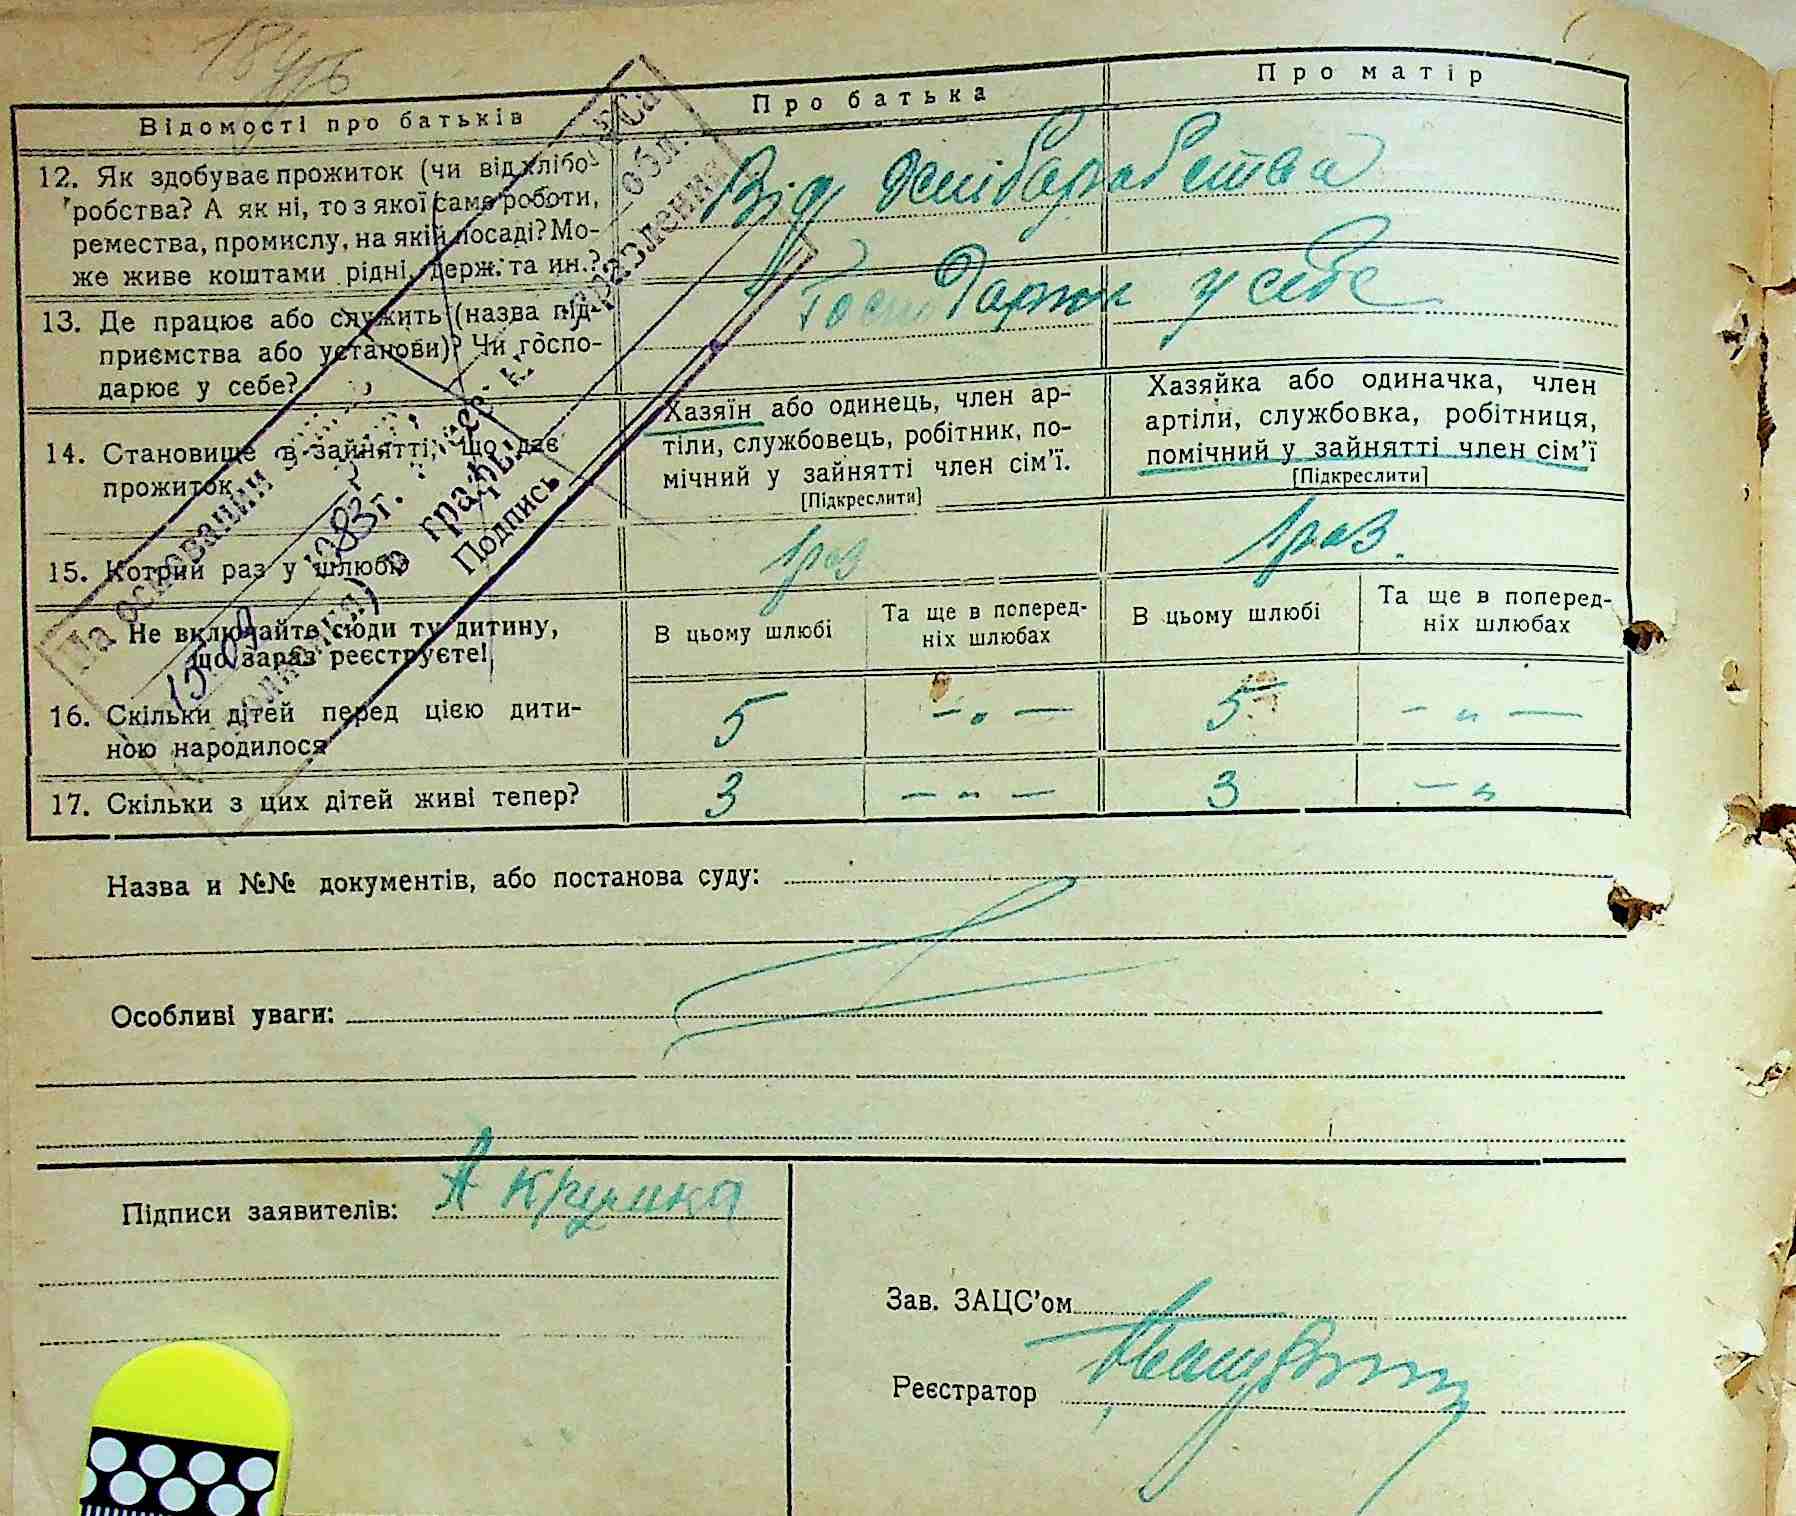 Відомості про батьків
Про батька
Про матір
12. Як здобуває прожиток (чи від хлібо-
робства? А як ні, то з якої саме роботи,
ремества, промислу, на якій посаді? Мо-
же живе коштами рідні, держ. та ин.?
Від хліборобства
13. Де працює або служить (назва під-
приємства або установи)? Чи госпо-
дарює у себе?
Господарює у себе
14. Становище в зайнятті, що дає
прожиток
Хазяїн або одинець, член ар-
тіли, службовець, робітник, по-
мічний у зайнятті член сім'ї.
[Підкреслити]
Хазяйка або одиначка, член
артіли, службовка, робітниця,
помічний у зайнятті член сім'ї
[Підкреслити]
15. Котрий раз у шлюбі
1 раз
1 раз.
Не включайте сюди ту дитину,
що зараз реєструєте!
В цьому шлюбі
Та ще в поперед-
ніх шлюбах
В цьому шлюбі
Та ще в поперед-
ніх шлюбах
16. Скільки дітей перед цією дити-
ною народилося
5 - „ - 5 - „ -
17. Скільки з цих дітей живі тепер?
3 - „ - 3 - „
На основании
1983 г.
управления
обл.
граждан
Подпись
Назва и №№ документів, або постанова суду:
Особливі уваги:
Підписи заявителів: А Крумка
Зав. ЗАЦС'ом
Реєстратор